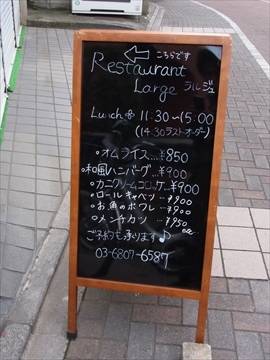 ⇦ こちらです
Restaurant
Large ラルジュ
Lunch 11:30〜15:00
(14:30ラストオーダー)
○オムライス…¥850
○和風ハンバーグ…¥900
○カニクリームコロッケ…¥900
○ロールキャベツ…¥900
○お魚のポワレ…¥900
○メンチカツ…¥950
ご予約も承ります♪
03-6807-6587